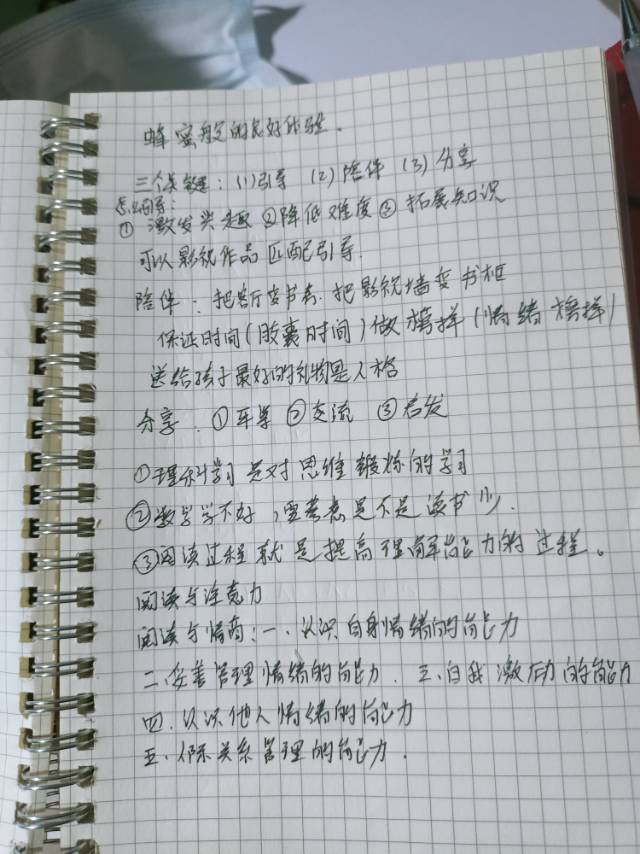 蜂蜜般的良好体验.
三个关键:(1)引导 (2)陪伴 (3)分享
怎么引导:
①激发兴趣②降低难度③拓展知识
可以影视作品匹配引导.
陪伴:把 变书房.把影视墙变书柜
保证时间(胶囊时间)做榜样(情绪榜样)
送给孩子最好的礼物是人格
分享.①平等②交流 ③启发
①理科学习是对思维锻炼的学习
②数学学不好,要考虑是不是读书少.
③阅读过程就是提高理解能力的过程。
阅读与注意力
阅读与情商:一.认识自身情绪的能力
二.妥善管理情绪的能力.三.自我激励的能力
四.认识他人情绪的能力
五.人际关系管理的能力.